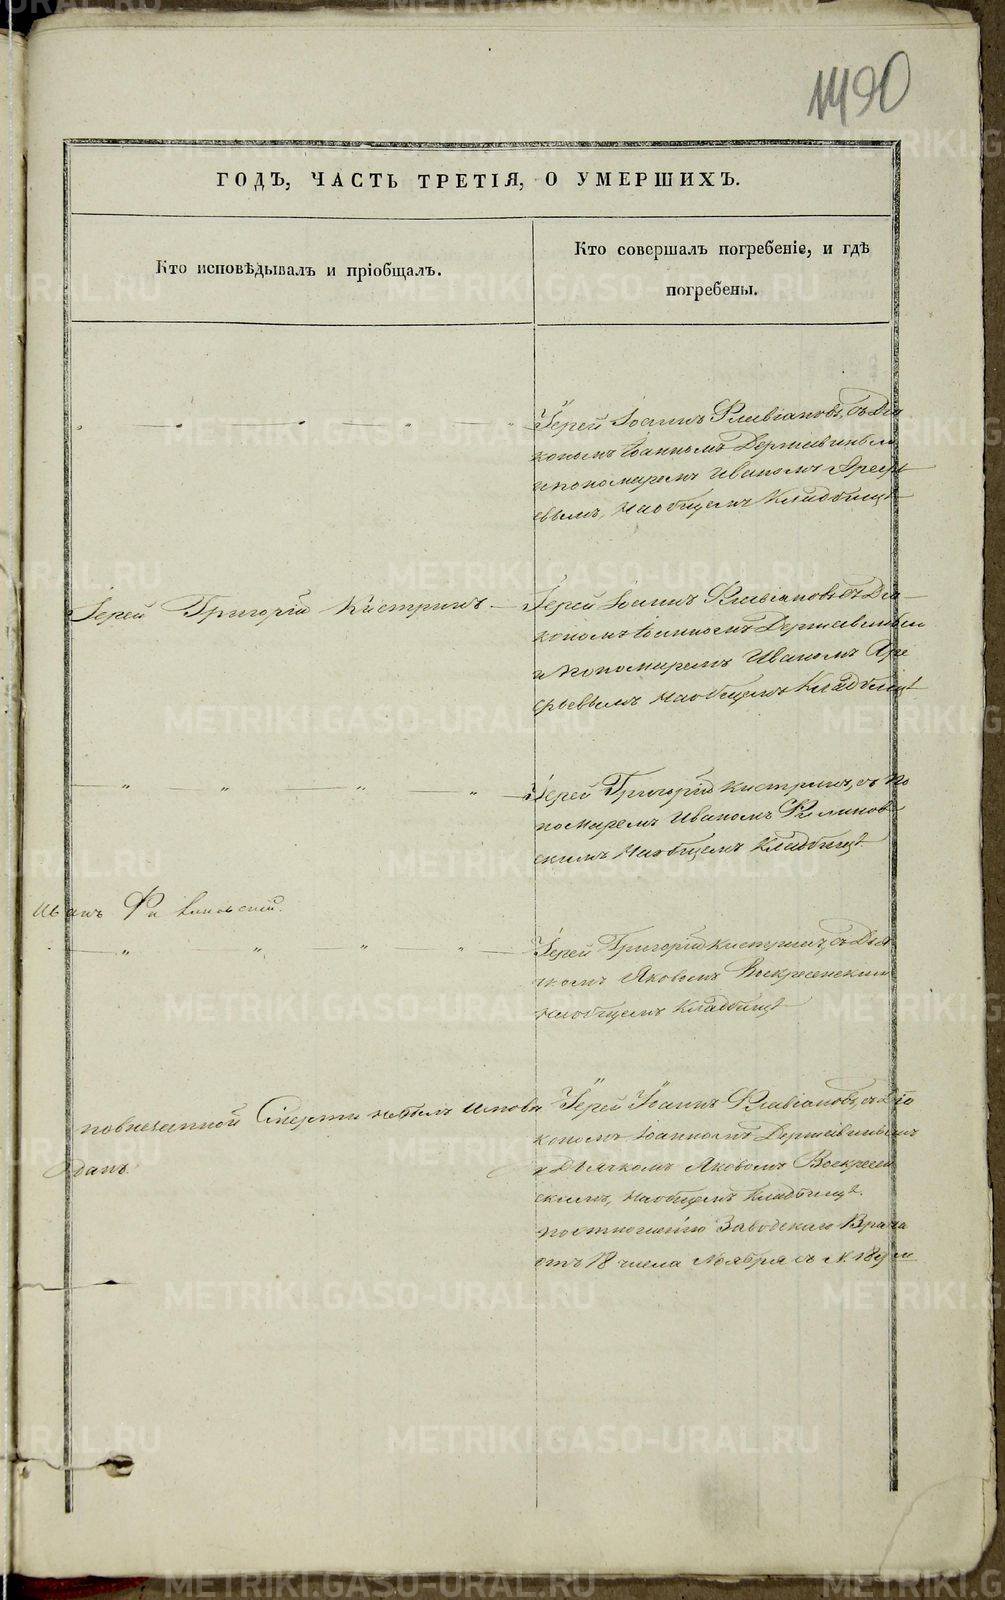 1490
ГОДЪ, ЧАСТЬ ТРЕТІЯ, О УМЕРШИХЪ.
Кто исповѣдывалъ и пріобщалъ.
Кто совершалъ погребеніе, и гдѣ
погребены.
Іерей Іоаннъ Флавіановъ, съ Діа
кономъ Іоанномъ Державинымъ
и пономаремъ Иваномъ Ареѳь
евымъ, на общемъ кладбищѣ
Іерей Григорій Кистринъ
Іерей Іоаннъ Флавіановъ съ Діа
кономъ Іоанномъ Державинымъ
и пономаремъ Иваномъ Аре
фьевымъ на общемъ кладбищѣ
Іерей Григорій Кистринъ, съ по
номаремъ Иваномъ
скимъ на общемъ кладбищѣ
Иванъ
Іерей Григорій Кистринъ, съ Дья
чкомъ Яковомъ Воскресенскимъ
на общемъ кладбищѣ
по внезапной смерти не былъ исповѣ
данъ
Іерей Іоаннъ Флавіановъ, съ Діа
кономъ Іоанномъ Державинымъ
и Дьячкомъ Яковомъ Воскресен
скимъ, на общемъ кладбищѣ.
по отношенію Заводскаго Врача
отъ 18 числа Ноября съ № 189 м
METRIKI.GASO-URAL.RU